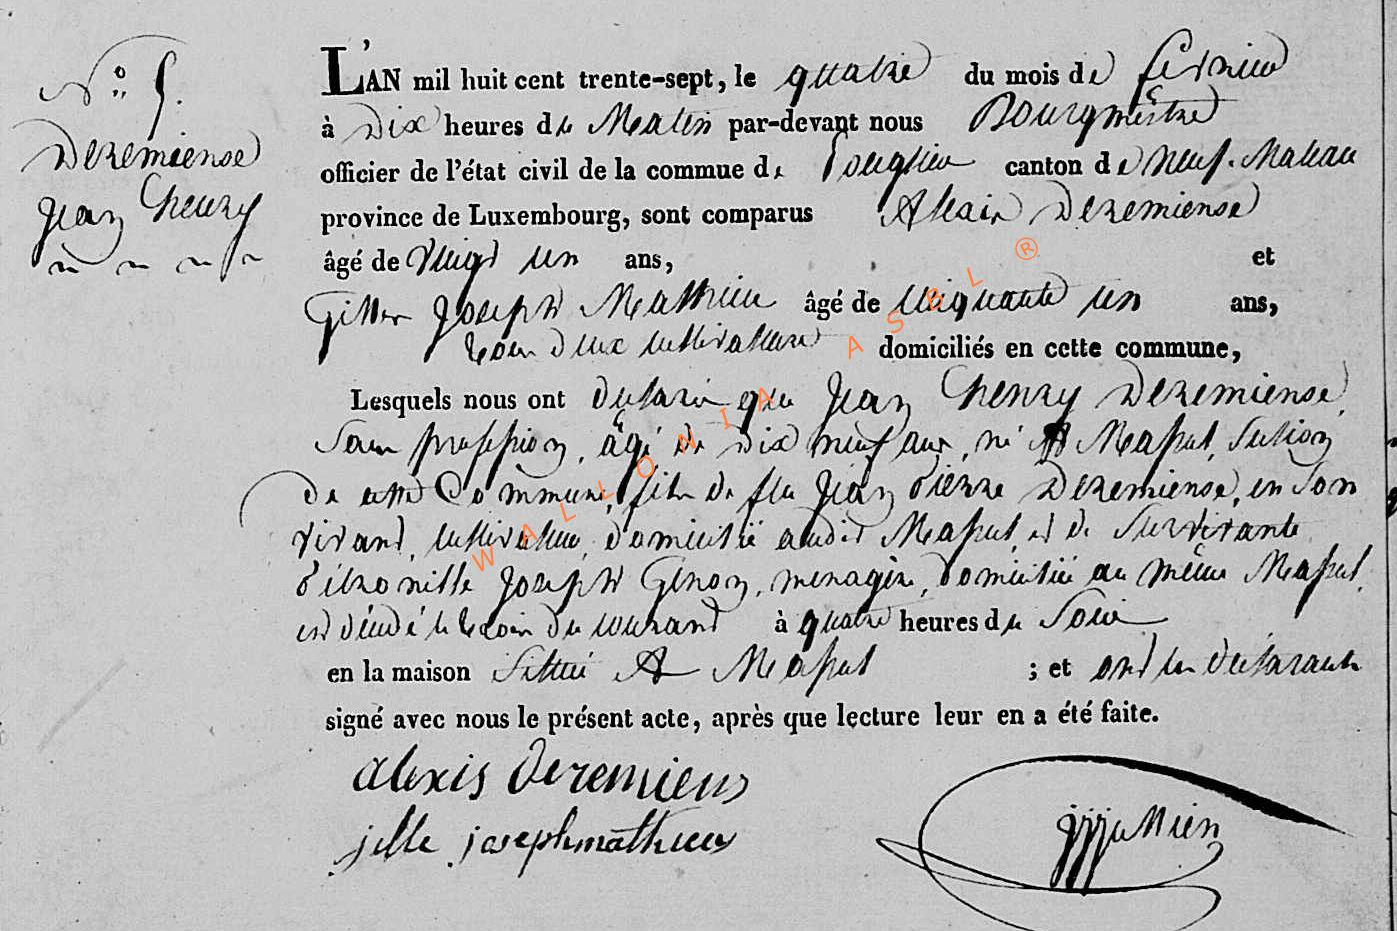 N° 5.
Deremiense
Jean henry
L'AN mil huit cent trente-sept, le quatre du mois de fevrier
à Dix heures de Matin par-devant nous Bourgmestre
officier de l'état civil de la commune de Longlier canton de Neuf-Chateau
province de Luxembourg, sont comparus Alexis Deremiense
âgé de vingt un ans, et
Giller Joseph Mathieu âgé de cinquante un ans,
tous deux cultivateurs domiciliés en cette commune,
Lesquels nous ont declaré que Jean henry Deremiense,
sans profession, âgé de dix neuf ans, né A Massul, section
de cette Commune, fils de feu Jean Pierre Deremiense, en son
vivant, cultivateur, domicilié audit Massul, et de survivante
Pétronille Joseph Genon, menagère, domiciliée au même Massul
est décédé le trois du courant à quatre heures de Soir
en la maison Située A Massul ; et ont les declarants
signé avec nous le présent acte, après que lecture leur en a été faite.
alexis deremiens
jille josephmathieu
WALLONIA ASBL ®